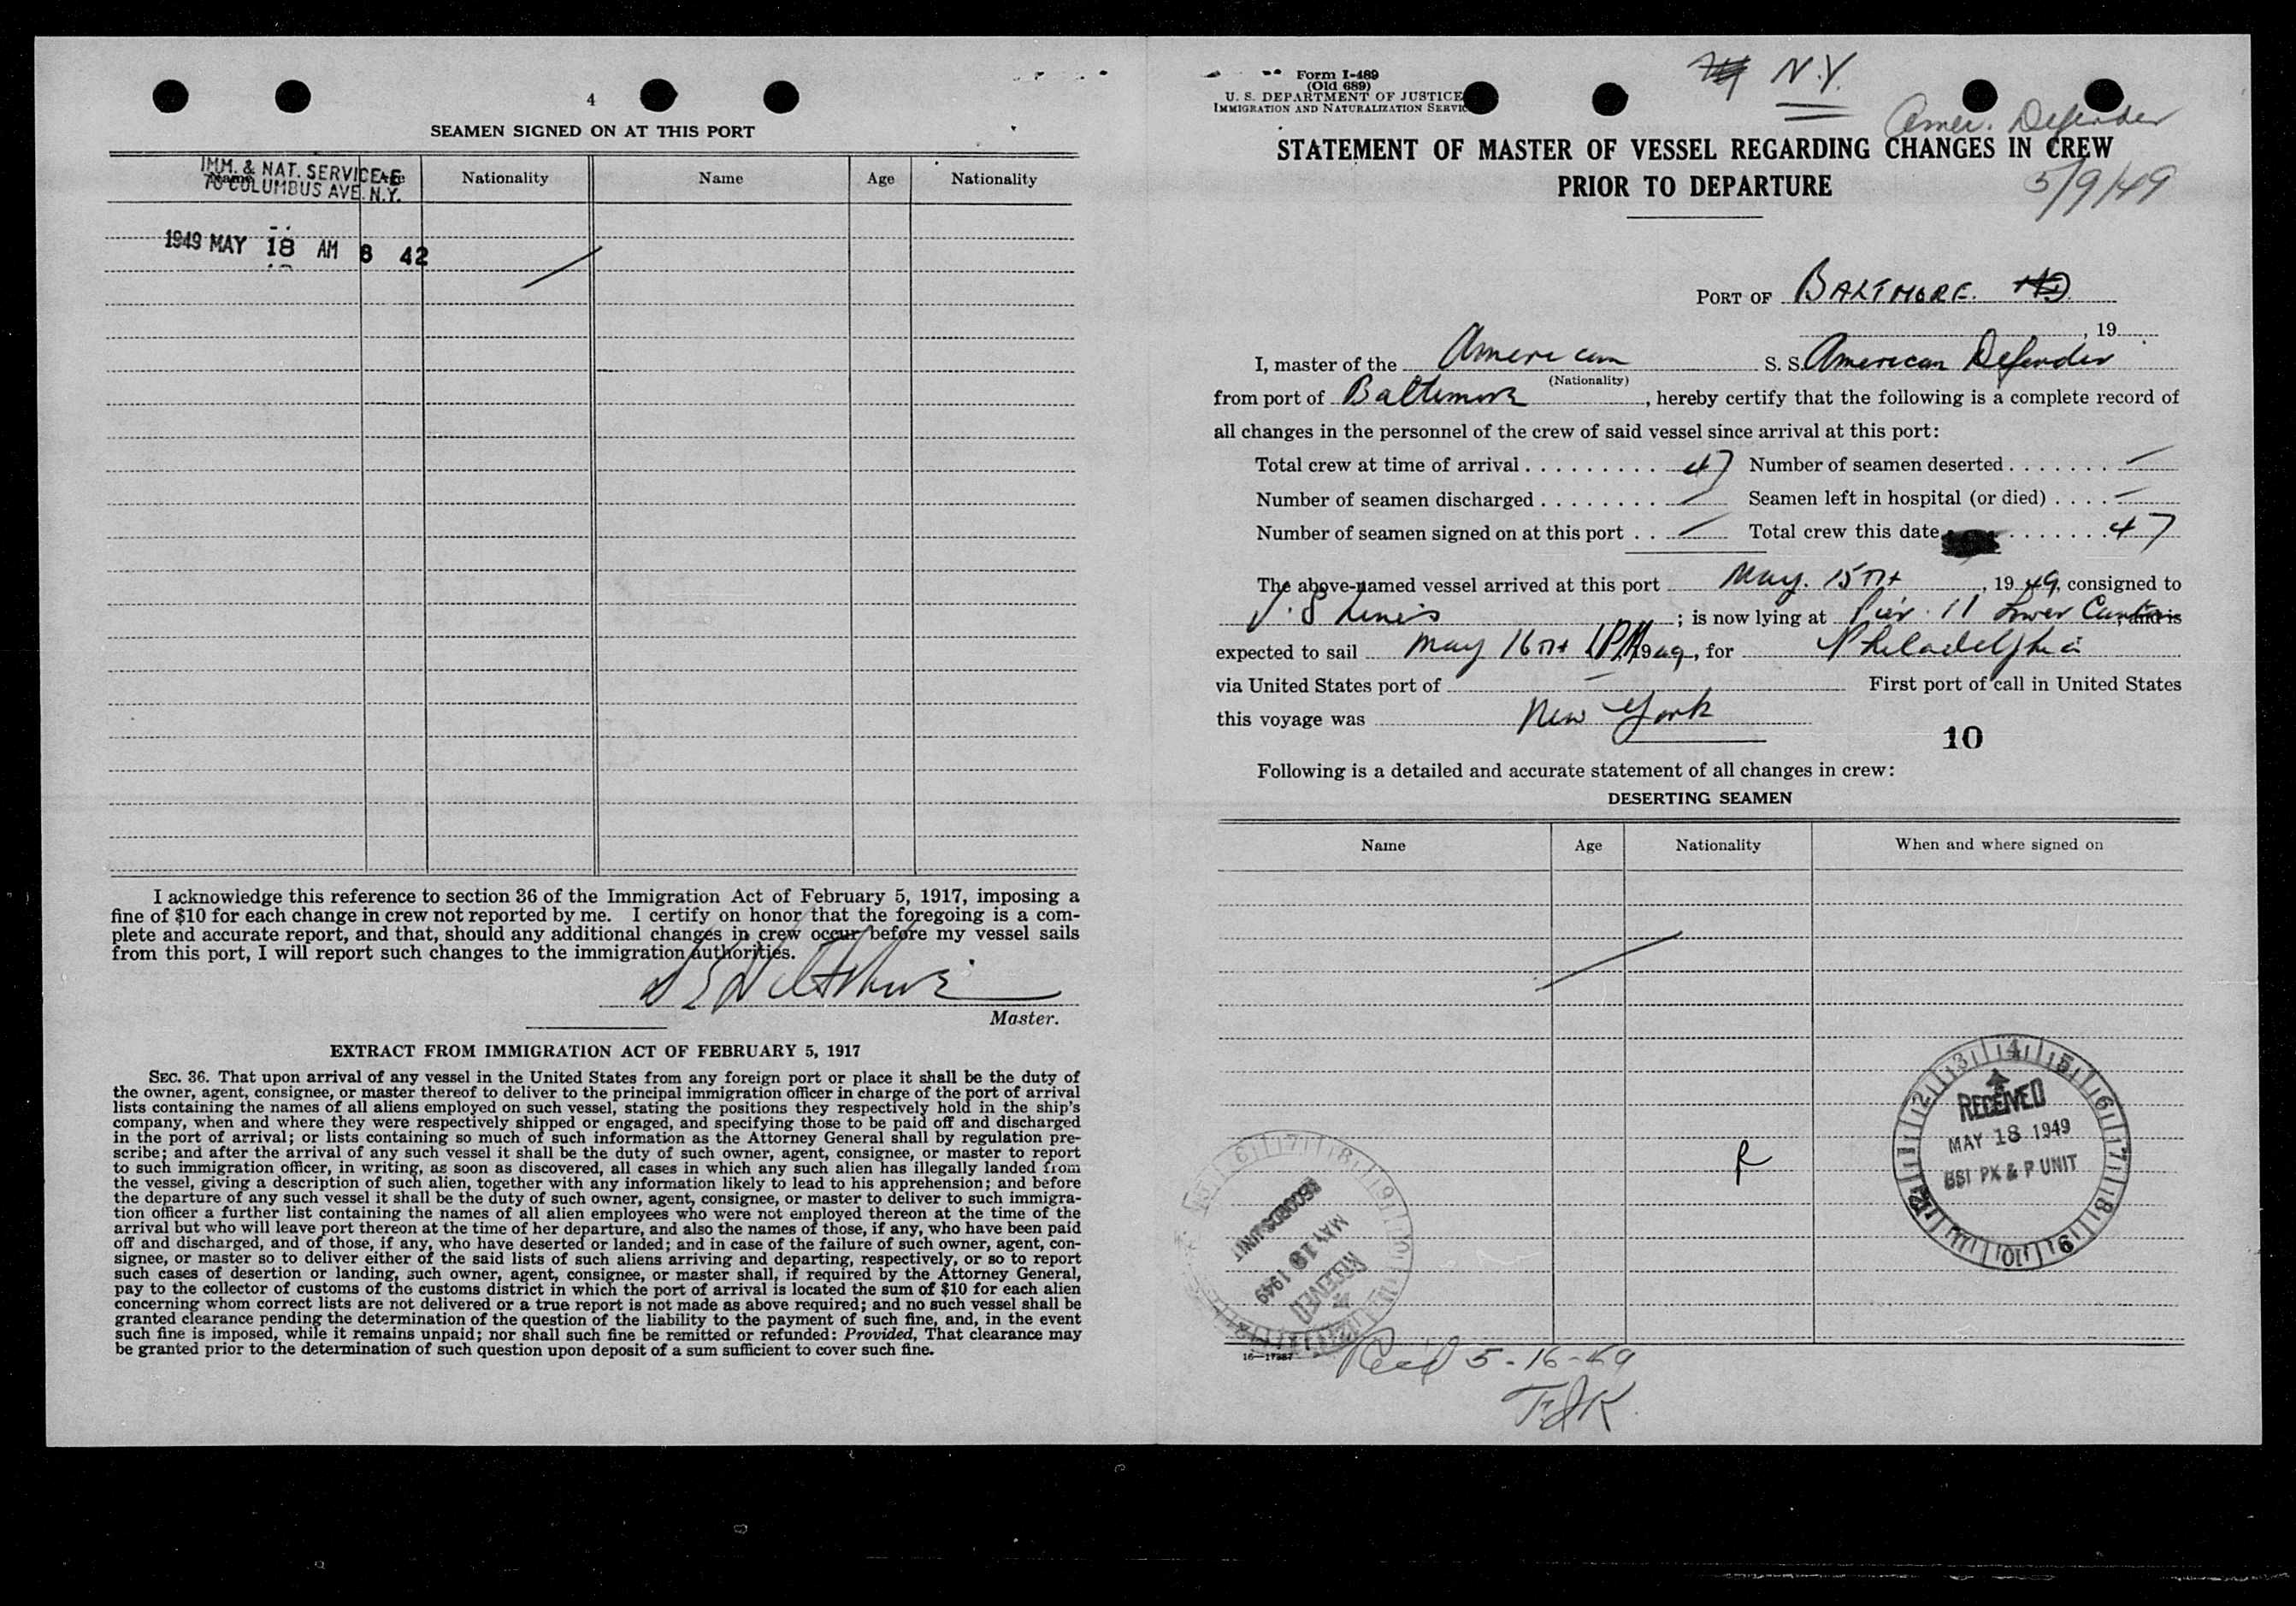 4
SEAMEN SIGNED ON AT THIS PORT
IMM. & NAT. SERVICE
70 COLUMBUS AVE. N.Y.
Name Age Nationality Name Age Nationality
1949 MAY 18 AM 8 42
I acknowledge this reference to section 36 of the Immigration Act of February 5, 1917, imposing a
fine of $10 for each change in crew not reported by me. I certify on honor that the foregoing is a com-
plete and accurate report, and that, should any additional changes in crew occur before my vessel sails
from this port, I will report such changes to the immigration authorities.
Master.
EXTRACT FROM IMMIGRATION ACT OF FEBRUARY 5, 1917
SEC. 36. That upon arrival of any vessel in the United States from any foreign port or place it shall be the duty of
the owner, agent, consignee, or master thereof to deliver to the principal immigration officer in charge of the port of arrival
lists containing the names of all aliens employed on such vessel, stating the positions they respectively hold in the ship's
company, when and where they were respectively shipped or engaged, and specifying those to be paid off and discharged
in the port of arrival; or lists containing so much of such information as the Attorney General shall by regulation pre-
scribe; and after the arrival of any such vessel it shall be the duty of such owner, agent, consignee, or master to report
to such immigration officer, in writing, as soon as discovered, all cases in which any such alien has illegally landed from
the vessel, giving a description of such alien, together with any information likely to lead to his apprehension; and before
the departure of any such vessel it shall be the duty of such owner, agent, consignee, or master to deliver to such immigra-
tion officer a further list containing the names of all alien employees who were not employed thereon at the time of the
arrival but who will leave port thereon at the time of her departure, and also the names of those, if any, who have been paid
off and discharged, and of those, if any, who have deserted or landed; and in case of the failure of such owner, agent, con-
signee, or master so to deliver either of the said lists of such aliens arriving and departing, respectively, or so to report
such cases of desertion or landing, such owner, agent, consignee, or master shall, if required by the Attorney General,
pay to the collector of customs of the customs district in which the port of arrival is located the sum of $10 for each alien
concerning whom correct lists are not delivered or a true report is not made as above required; and no such vessel shall be
granted clearance pending the determination of the question of the liability to the payment of such fine, and, in the event
such fine is imposed, while it remains unpaid; nor shall such fine be remitted or refunded: Provided, That clearance may
be granted prior to the determination of such question upon deposit of a sum sufficient to cover such fine.
Form I-489
(Old 689)
U. S. DEPARTMENT OF JUSTICE
IMMIGRATION AND NATURALIZATION SERVICE
N.Y.
Amer. Defender
5/9/49
STATEMENT OF MASTER OF VESSEL REGARDING CHANGES IN CREW
PRIOR TO DEPARTURE
PORT OF BALTMORE. MD
, 19
I, master of the American S. S. American Defender
(Nationality)
from port of Baltimore, hereby certify that the following is a complete record of
all changes in the personnel of the crew of said vessel since arrival at this port:
Total crew at time of arrival . . . . . . . . . 47 Number of seamen deserted . . . . . . . —
Number of seamen discharged . . . . . . . . — Seamen left in hospital (or died) . . . . —
Number of seamen signed on at this port . . — Total crew this date . . . . . . . 47
The above-named vessel arrived at this port May. 15TH, 1949, consigned to
U. S Lines; is now lying at Pier 11 Lower Canton and is
expected to sail May 16TH 1PM 1949, for Philadelphia
via United States port of — First port of call in United States
this voyage was New York
10
Following is a detailed and accurate statement of all changes in crew:
DESERTING SEAMEN
Name Age Nationality When and where signed on
RECEIVED
MAY 18 1949
BSI PX & P UNIT
R
RECORDS UNIT
MAY 19 1949
RECEIVED
16—17887
Rec'd 5-16-49
FJK